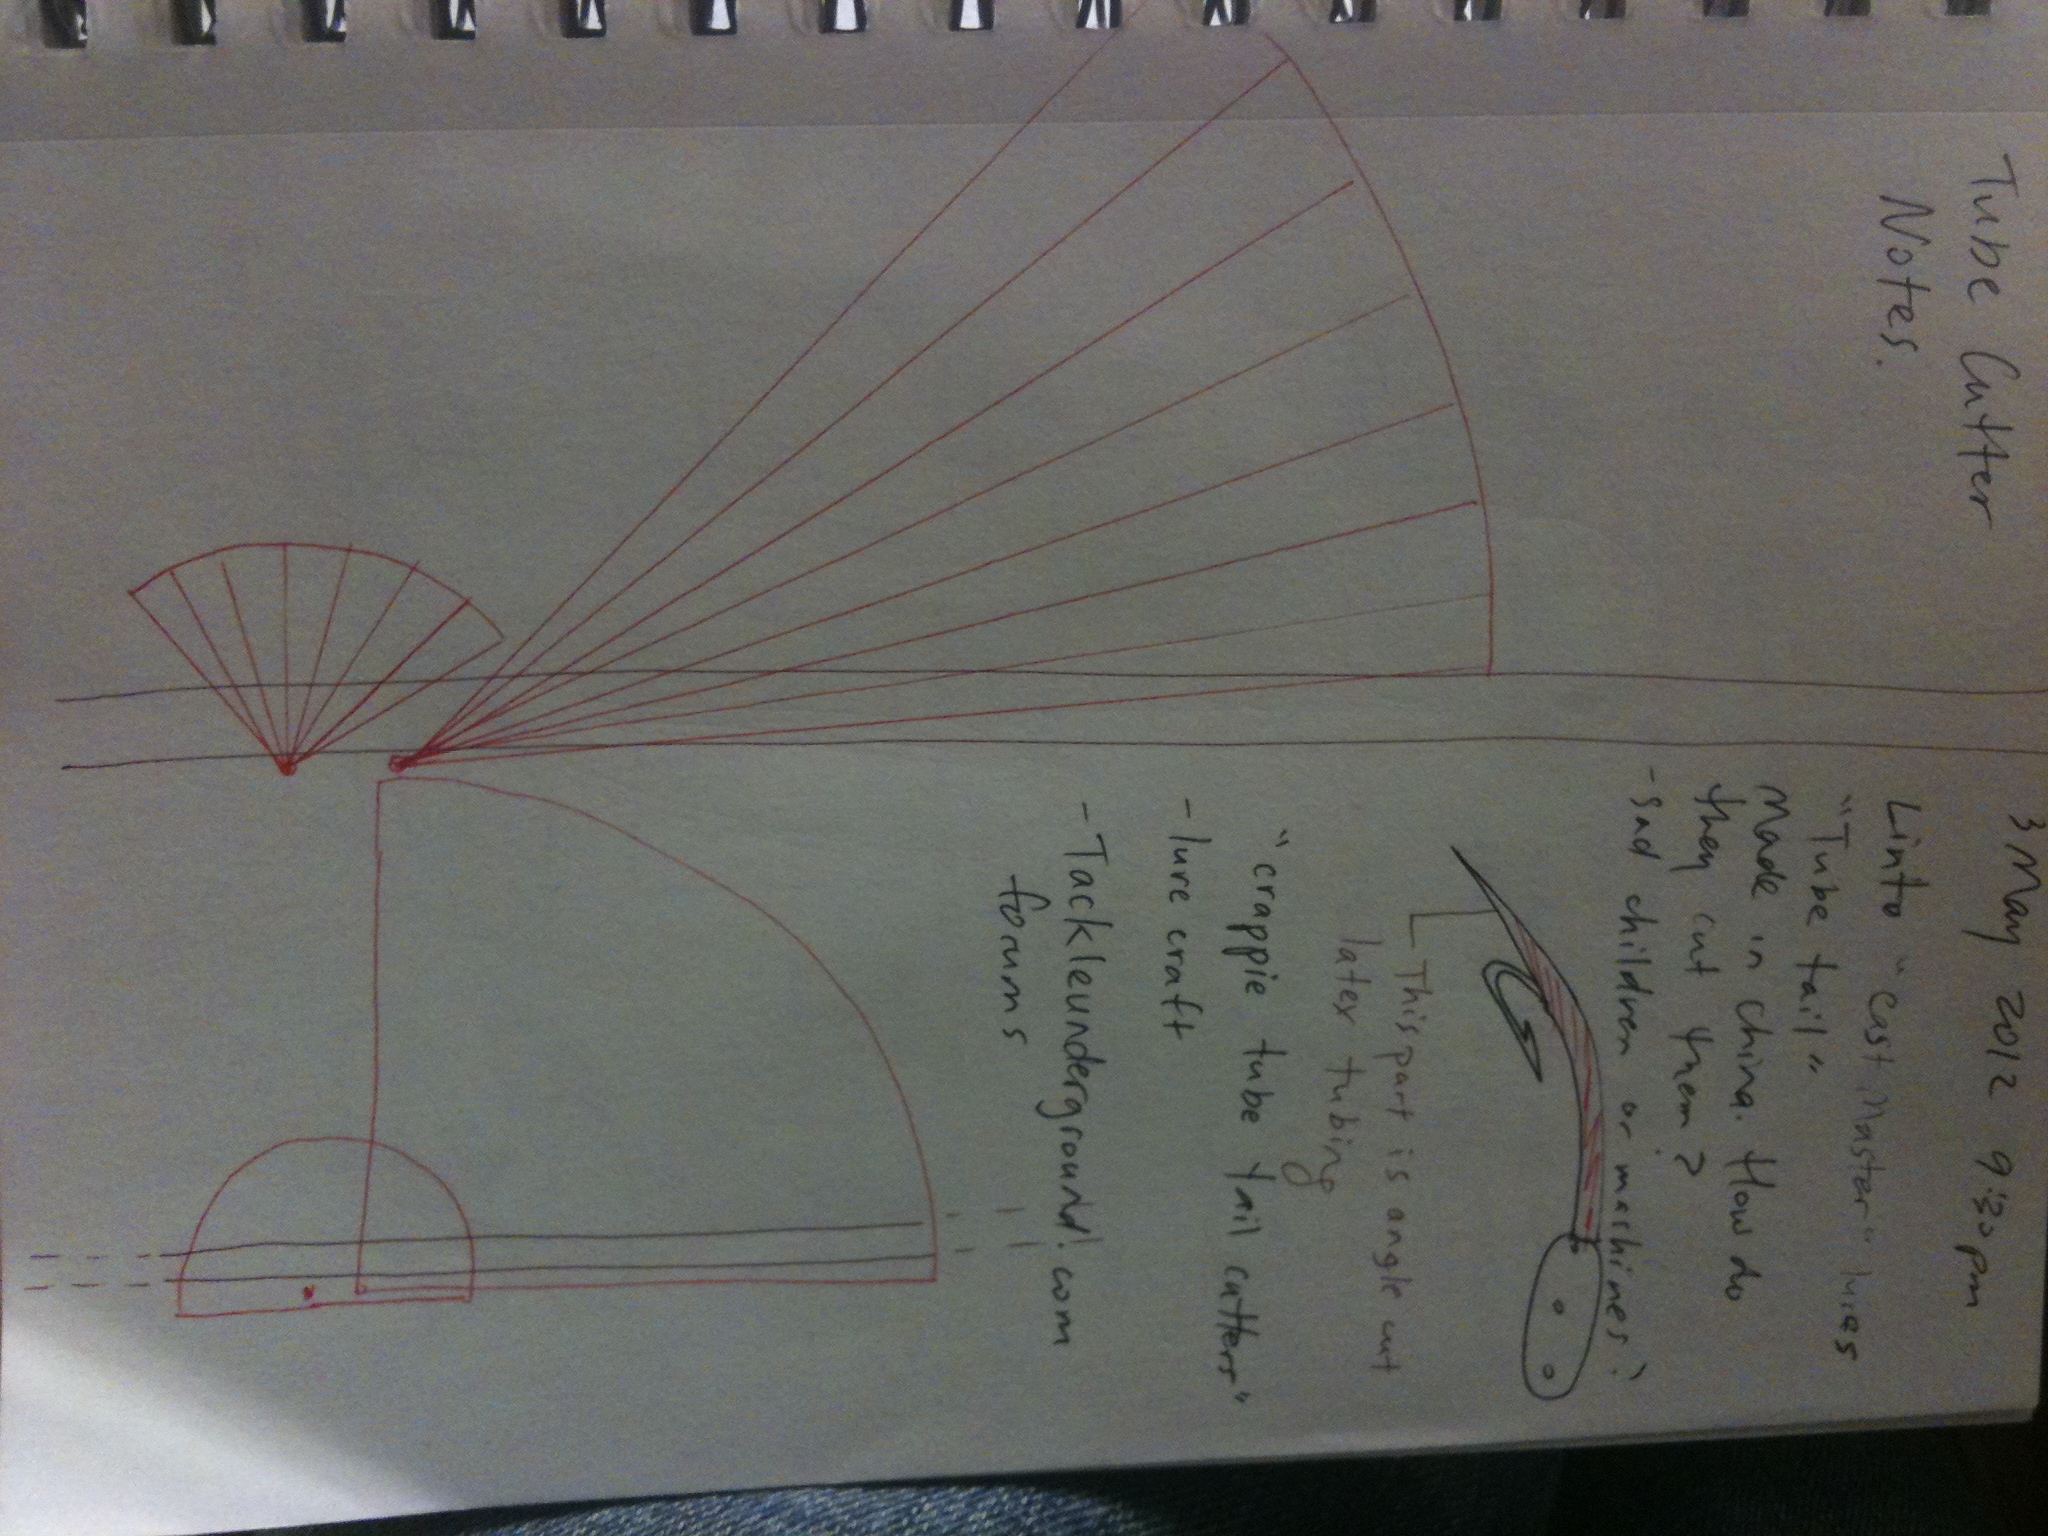 Tube Cutter
Notes.
3 May 2012 9:30pm
Linto "Cast Master" lures
"Tube tail"
Made in China. How do
they cut them?
- Sad children or machines?
This part is angle cut
latex tubing
"crappie tube tail cutters"
- lure craft
- Tackleunderground.com
forums